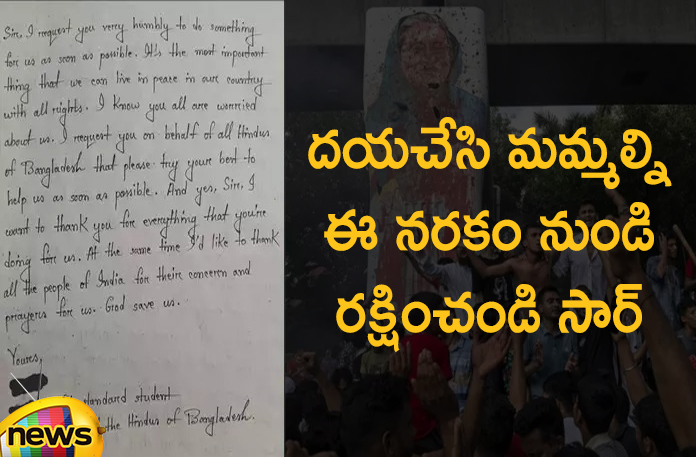 Sir, I request you very humbly to do something
for us as soon as possible. It's the most important
thing that we can live in peace in our country
with all rights. I know you all are worried
about us. I request you on behalf of all Hindus
of Bangladesh that please try your best to
help us as soon as possible. And yes, Sir, I
want to thank you for everything that you're
doing for us. At the same time I'd like to thank
all the people of India for their concern and
prayers for us. God save us.
Yours,
standard student
the Hindus of Bangladesh.
news
దయచేసి మమ్మల్ని
ఈ నరకం నుండి
రక్షించండి సార్